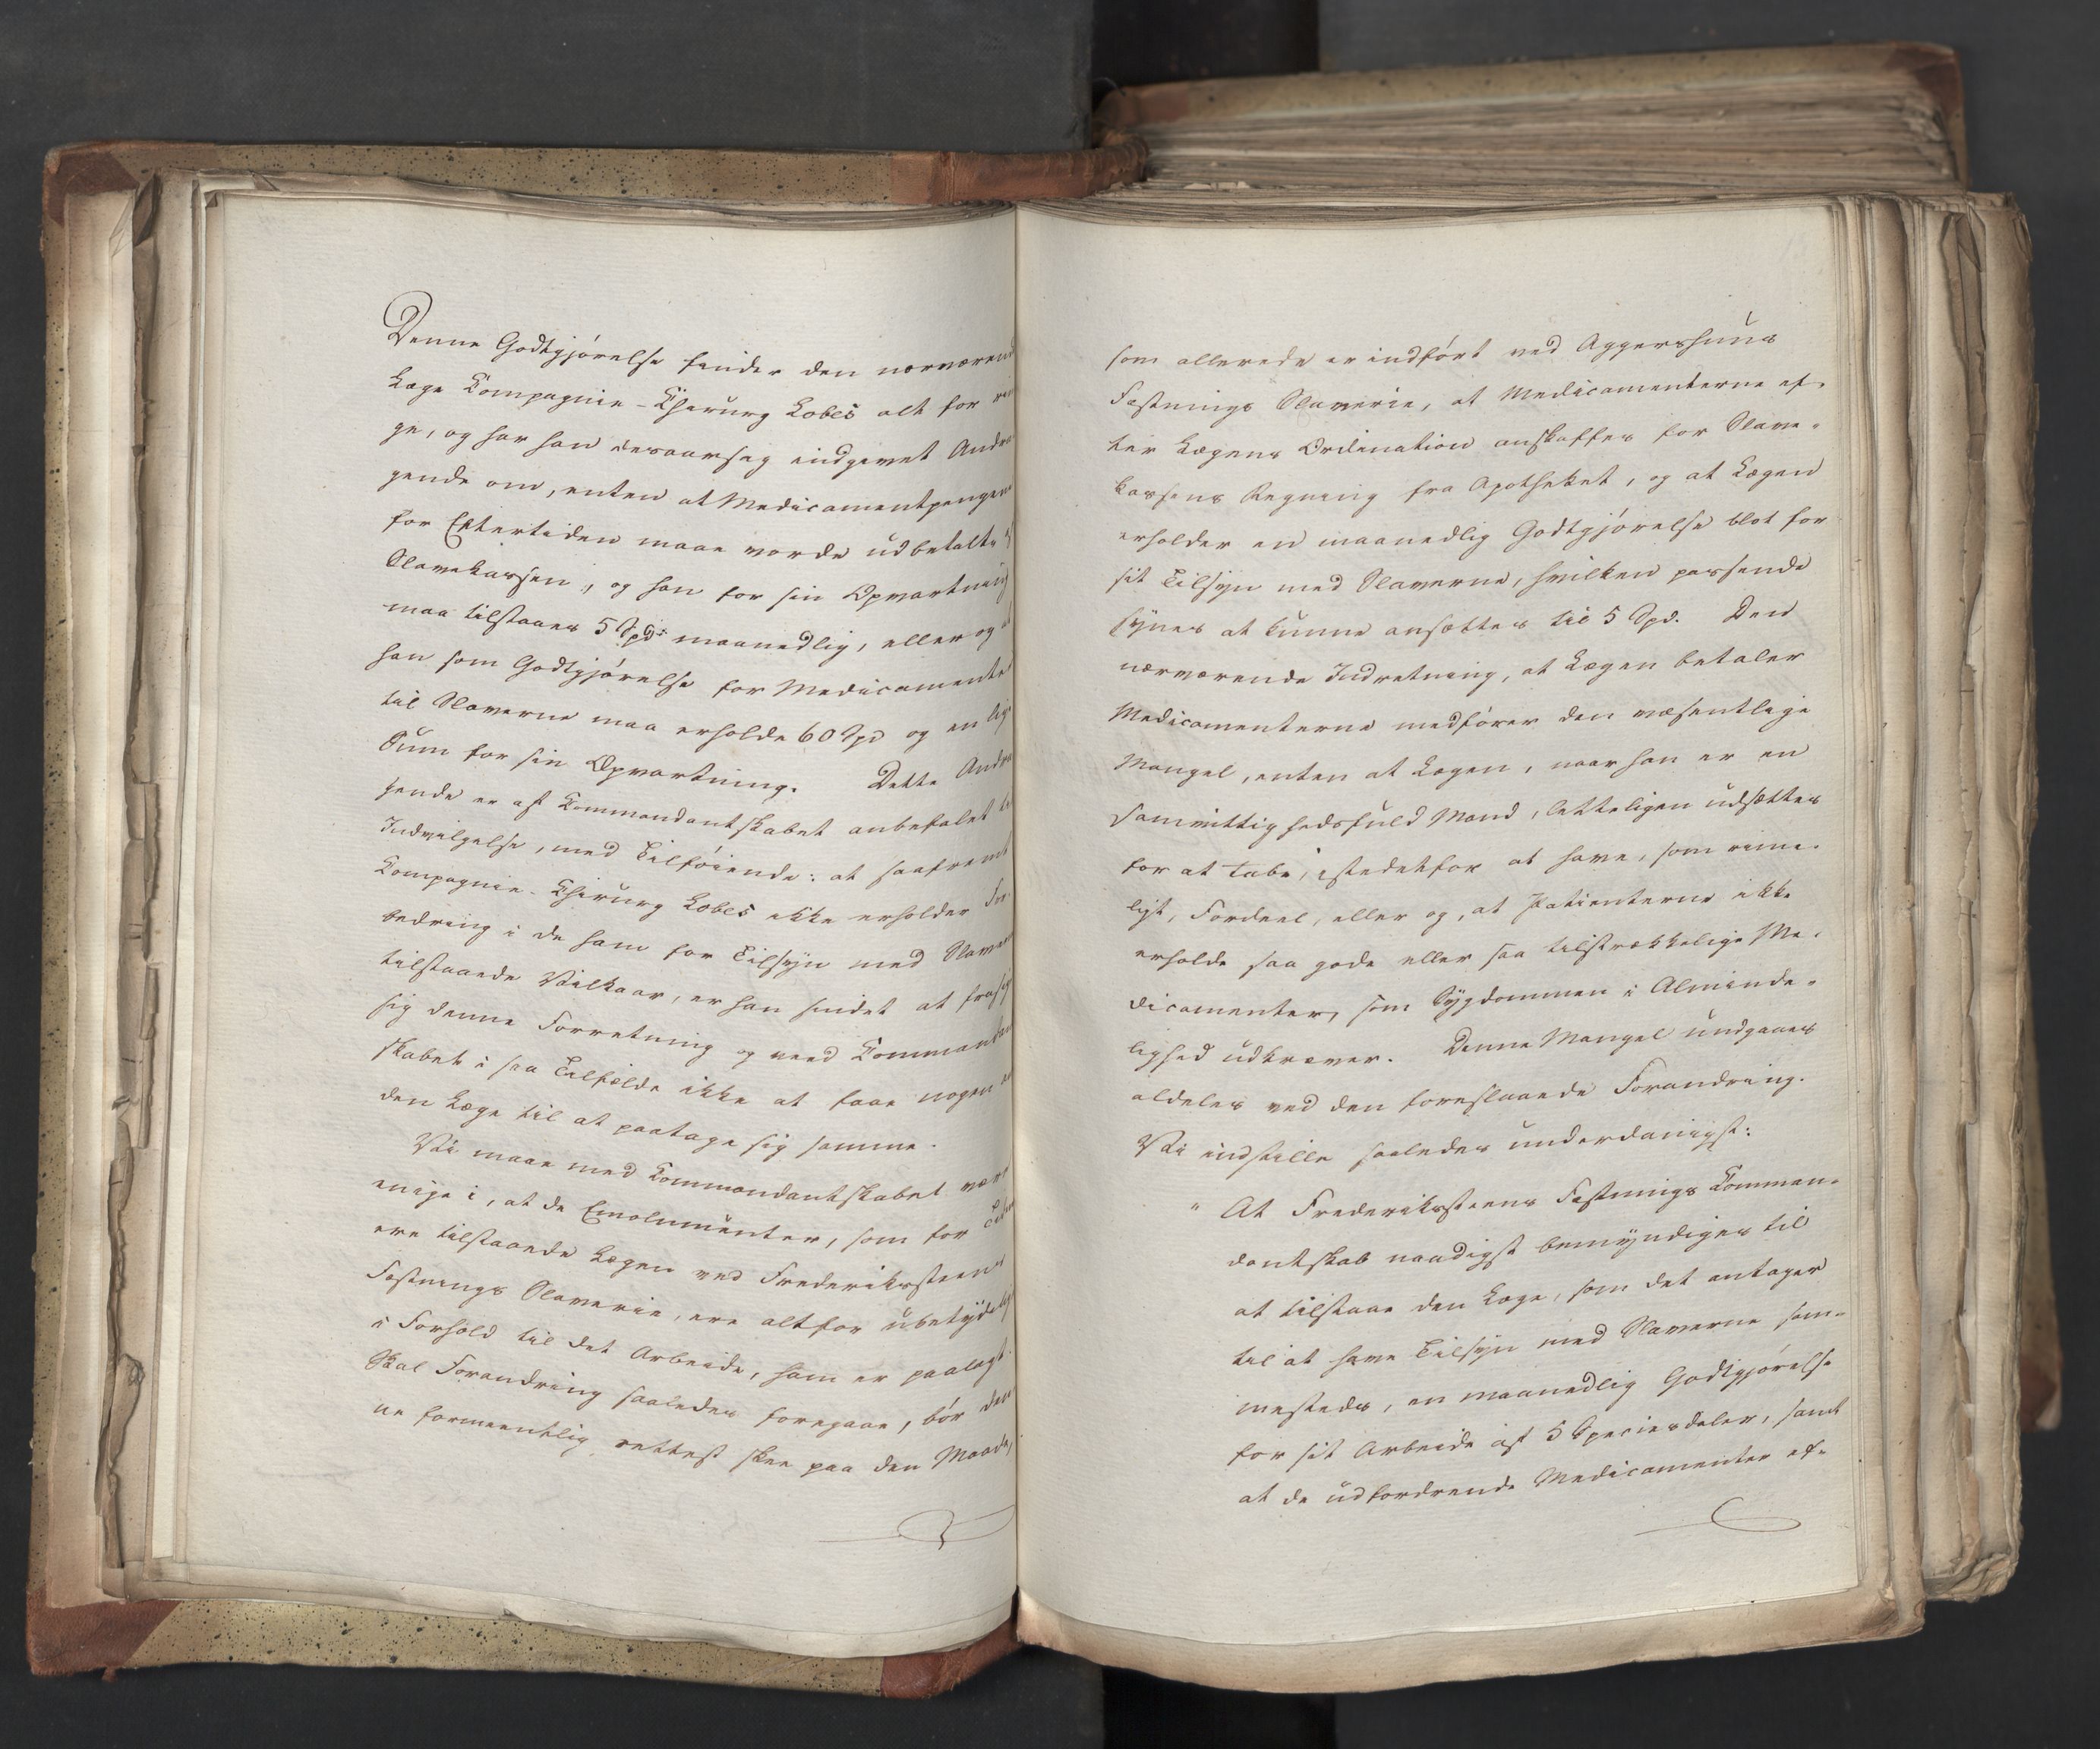 Denne Godtgjörelse finder den nærværend
Læge Compagnie-Chirurg Lobes alt for rin
ge, og har han desaarsag indgivet Andra
gende om, enten at Medicamentpengene
for Eftertiden maae vorde udbetalte
Slavekassen, og han for sin Opvartning
maa tilstaaes 5 Spd: maanedlig, eller og at
han som Godtgjörelse for Medicamenter
til Slaverne maa erholde 60 Spd og en lige
Sum for sin Opvartning. Dette Andra
gende er af Commandantskabet anbefalet til
Indvilgelse, med Tilföiende: at saafremt
Compagnie-Chirurg Lobes ikke erholder For-
bedring i de ham for Tilsyn med Slaverne
tilstaaede Vilkaar, er han sindet at frasige
sig denne Forretning og veed Commandant
skabet i saa Tilfælde ikke at faae nogen an
den Læge til at paatage sig samme.
Vi maae med Commandantskabet være
enige i, at de Emolumenter, som for Tiden
ere tilstaaede Lægen ved Frederikssteens
Fæstnings Slaverie, ere altfor ubetydelige
i Forhold til det Arbeide, ham er paalagt.
Skal Forandring saaledes foregaae, bör den
ne formeentlig rettest skee paa den Maade,
som allerede er indfört ved Aggershuus
Fæstnings Slaverie, at Medicamenterne ef-
ter Lægens Ordination anskaffes for Slave-
kassens Regning fra Apotheket, og at Lægen
erholder en maanedlig Godtgjörelse blot for
sit Tilsyn med Slaverne, hvilken passende
synes at kunne ansættes til 5 Spd. Den
nærværende Indretning, at Lægen betaler
Medicamenterne medförer den væsentlige
Mangel, enten at Lægen, naar han er en
samvittighedsfuld Mand, letteligen udsættes
for at tabe, istedetfor at have, som rime-
ligt, Fordeel, eller og, at Patienterne ikke
erholde saa gode eller saa tilstrækkelige Me-
dicamenter, som Sygdommen i Alminde-
lighed udkræver. Denne Mangel undgaaes
aldeles ved den foreslaaede Forandring.
Vi indstille saaledes underdanigst:
" At Frederikssteens Fæstnings Comman-
dantskab naadigst bemyndiges til
at tilstaae den Læge, som det antager
til at have Tilsyn med Slaverne sam-
mesteds, en maanedlig Godtgjörelse
for sit Arbeide af 5 Speciesdaler, samt
at de udfordrende Medicamenter ef-